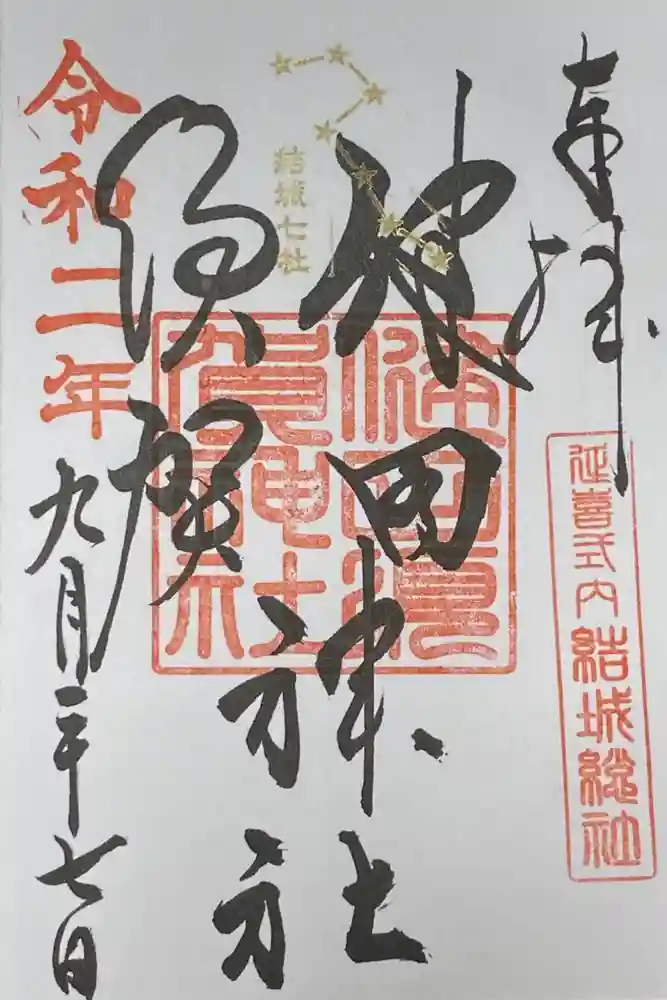 奉拝
延喜式内結城総社
結城七社
健田
須賀
神社
健田須
賀神社
令和二年九月二十七日